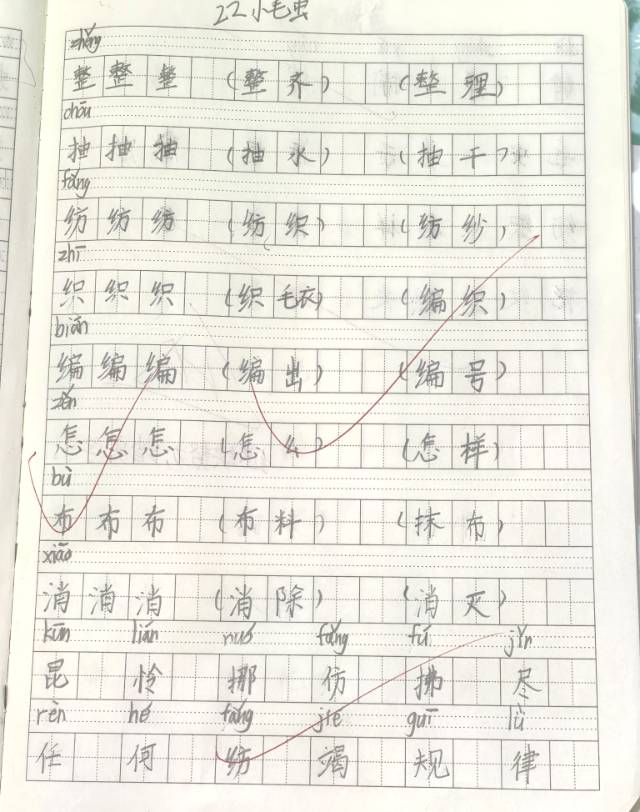 22小毛虫
zhěng
整 整 整 (整 齐) (整 理)
chōu
抽 抽 抽 (抽 水) (抽 干)
fǎng
纺 纺 纺 (纺 织) (纺 纱)
zhī
织 织 织 (织 毛衣) (编 织)
biān
编 编 编 (编 出) (编 号)
zěn
怎 怎 怎 (怎 么) (怎 样)
bù
布 布 布 (布 料) (抹 布)
xiāo
消 消 消 (消 除) (消 灭)
kūn lián nuó fǎng fú jǐn
昆 怜 挪 仿 拂 尽
rèn hé fǎng jié guī lǜ
任 何 纺 竭 规 律